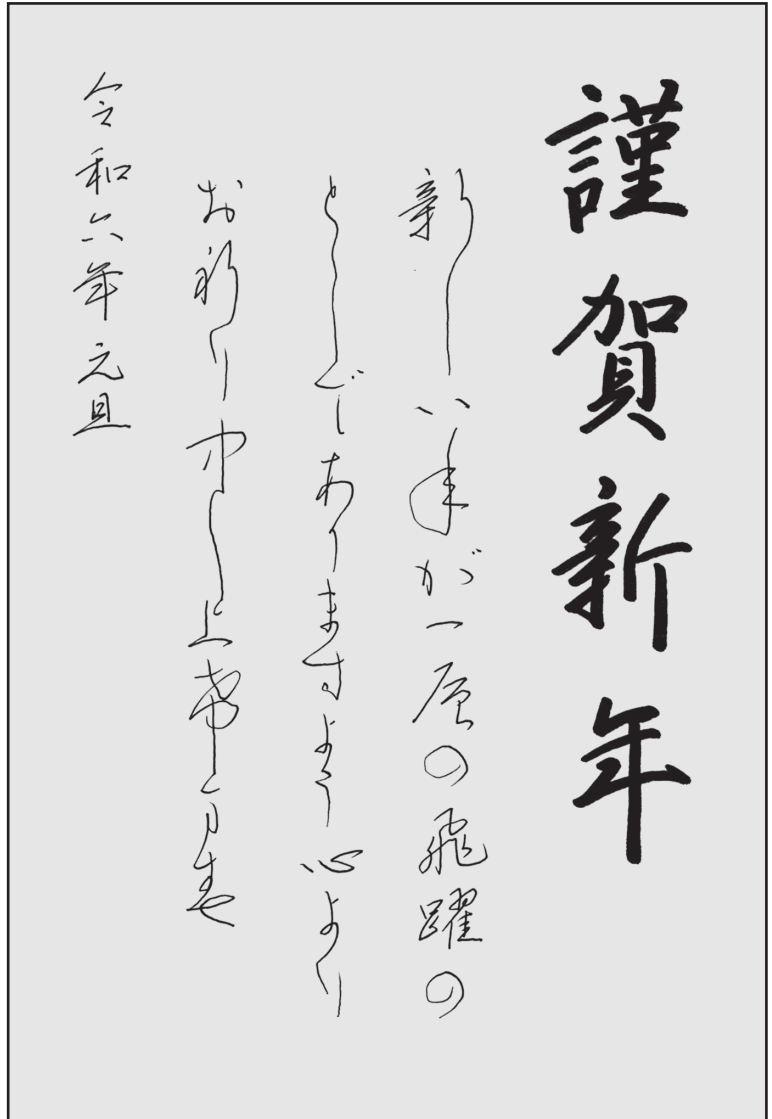 謹賀新年
新しい年が一層の飛躍の
としでありますよう心より
お祈り申し上げます
令和六年元旦